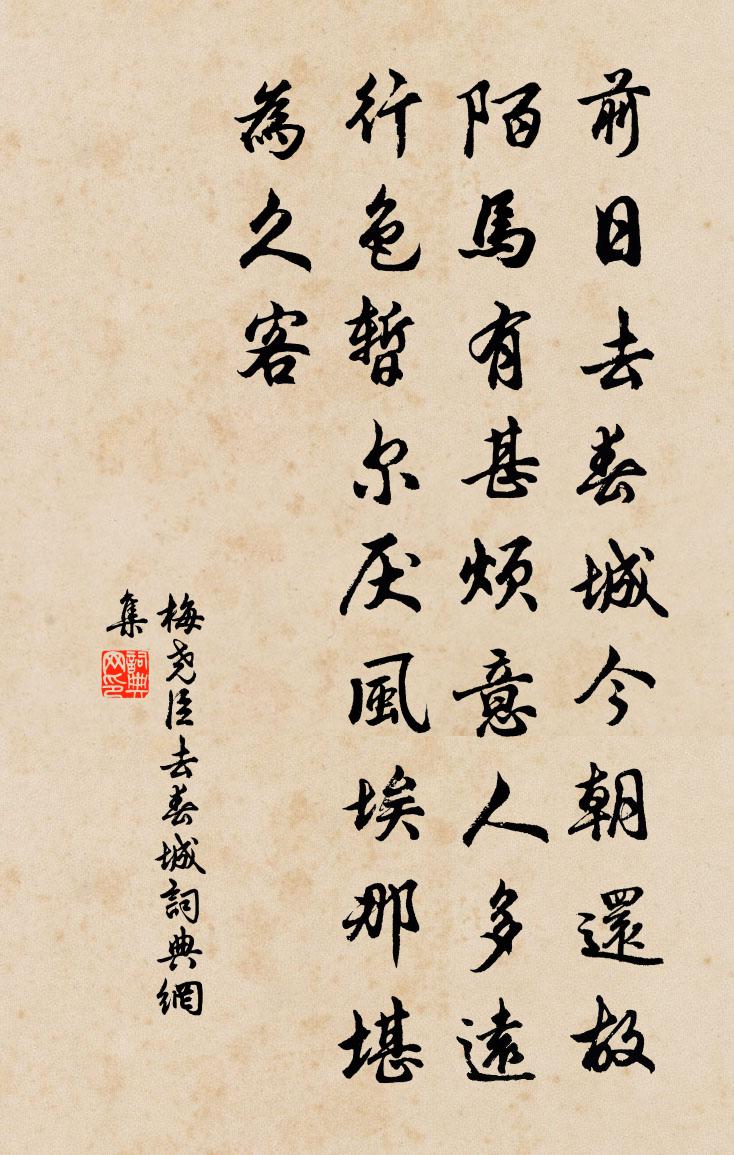 前日去春城今朝還故
陌馬有甚煩意人多遠
行色暫尔厌風埃那堪
為久客
梅尧臣去春城詞典網
集
詞典
网印